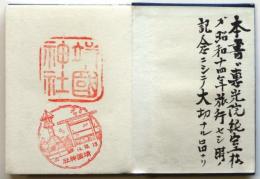 本書ハ惠光院純空松
ガ昭和十四年旅行セシ時ノ
記念ニシテ大切ナル品ナリ
靖國
神社
靖國神社